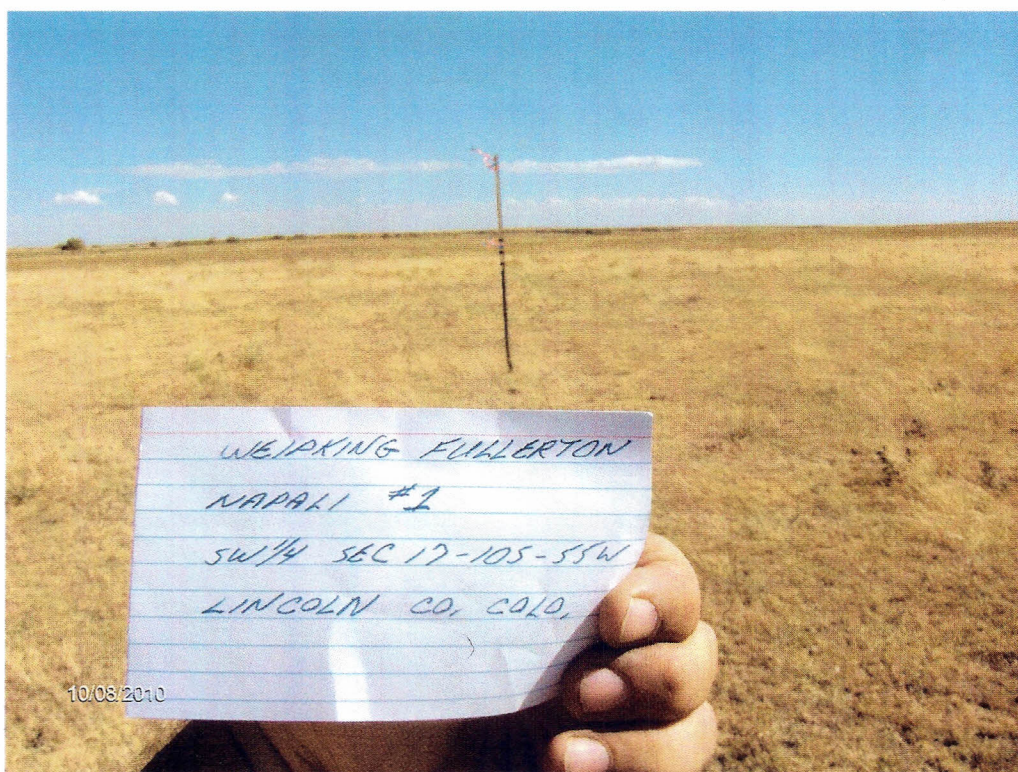 WEIPKING FULLERTON
NAPALI #1
SW 1/4 SEC 17-10S-55W
LINCOLN CO, COLO,
10/08/2010